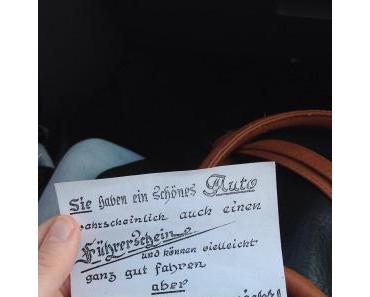 Sie haben ein schönes Auto
wahrscheinlich auch einen
Führerschein
und können vielleicht
ganz gut fahren
aber